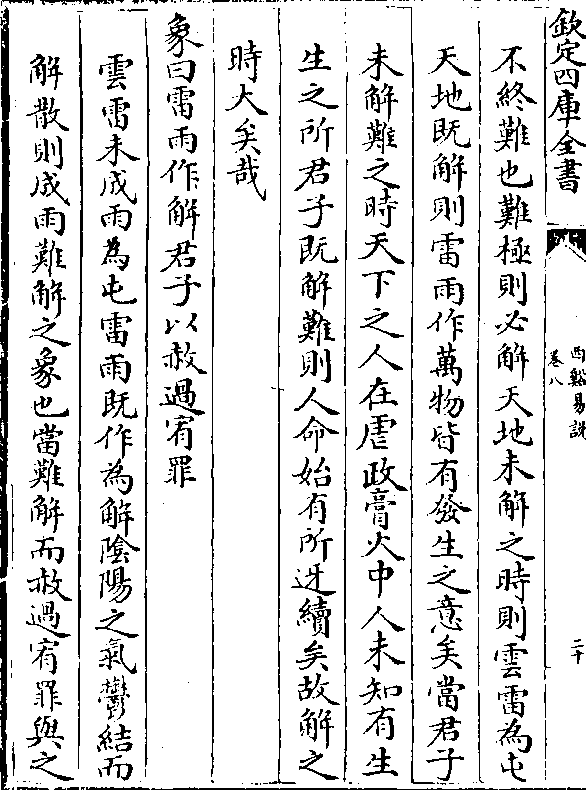 欽定四庫全書
西谿易說
卷八
二十
不終難也難極則必解天地未解之時則雲雷為屯
天地既解則雷雨作萬物皆有發生之意矣當君子
未解難之時天下之人在虐政膏火中人未知有生
生之所君子既解難則人命始有所迓續矣故解之
時大矣哉
象曰雷雨作解君子以赦過宥罪
雲雷未成雨為屯雷雨既作為解陰陽之氣鬱結而
解散則成雨難解之象也當難解而赦過宥罪與之